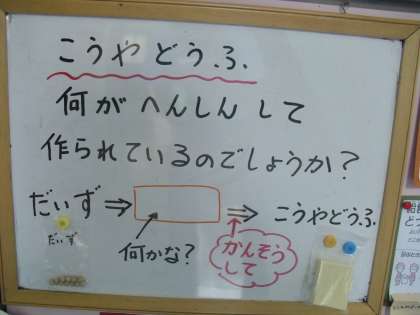 こうやどうふ
何がへんしんして
作られているのでしょうか?
だいず ⇒ ⇒ こうやどうふ
だいず
何かな?
かんそう
して